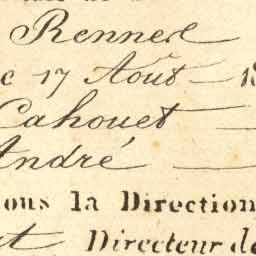 Rennes
17 Août
Cahouet
André
ous la Direction
Directeur de